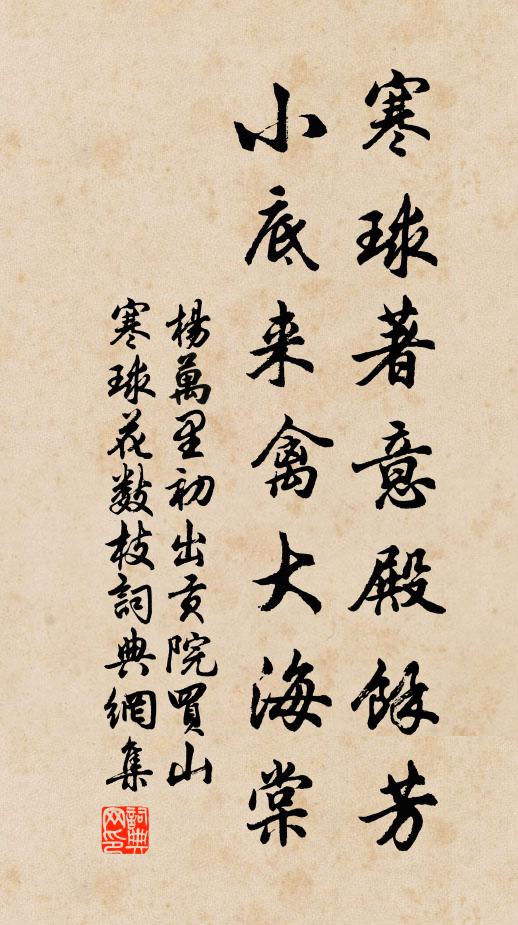 寒球著意殿餘芳
小底来禽大海棠
楊萬里初出貢院買山
寒球花數枝詞典網集
詞典网印